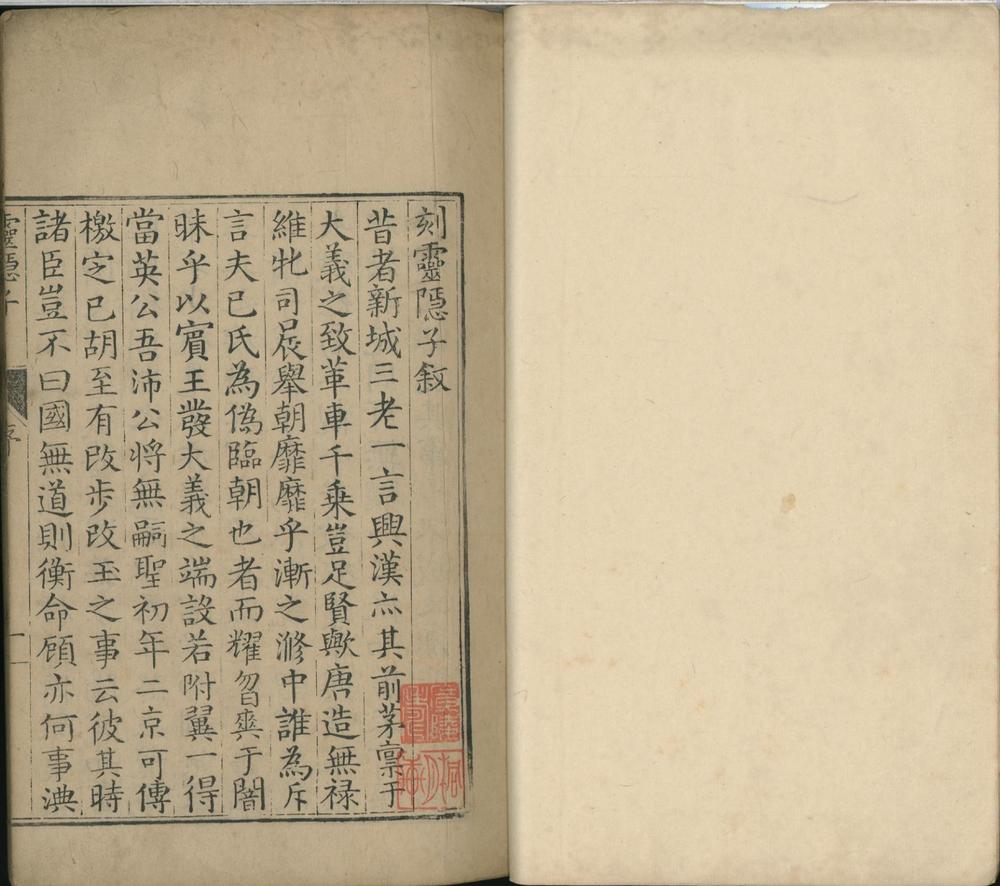 刻靈隱子敘
昔者新城三老一言興漢亦其前茅稟于
大義之致革車千乘豈足賢歟唐造無祿
維牝司晨舉朝靡靡乎漸之滫中誰為斥
言夫已氏為偽臨朝也者而耀曶爽于闇
昧乎以賓王發大義之端設若附翼一得
當英公吾沛公將無嗣聖初年二京可傳
檄定已胡至有改步改玉之事云彼其時
諸臣豈不曰國無道則衡命顧亦何事淟
靈隱子
序
一